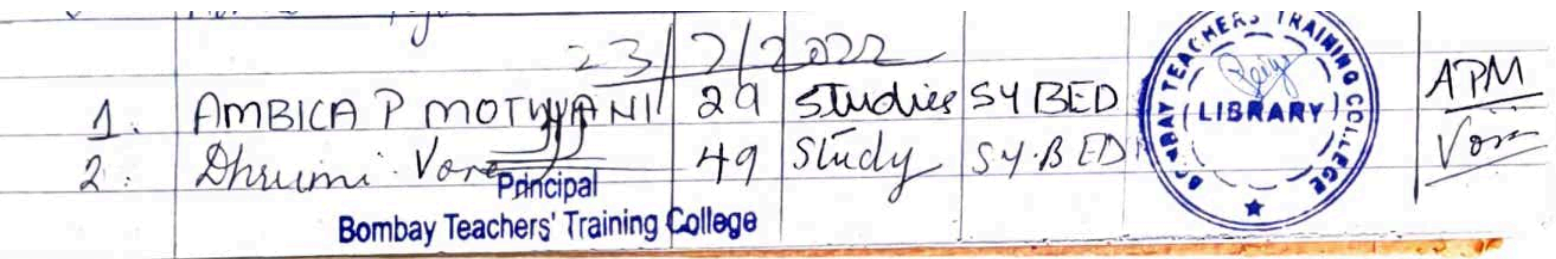 23/2/2022
1. AMBICA P MOTWANI 29 Studies SY BED APM
2. Dhrumi Vora 49 Study S.Y.B ED Vora
Principal
Bombay Teachers' Training College
BOMBAY TEACHERS TRAINING COLLEGE
LIBRARY